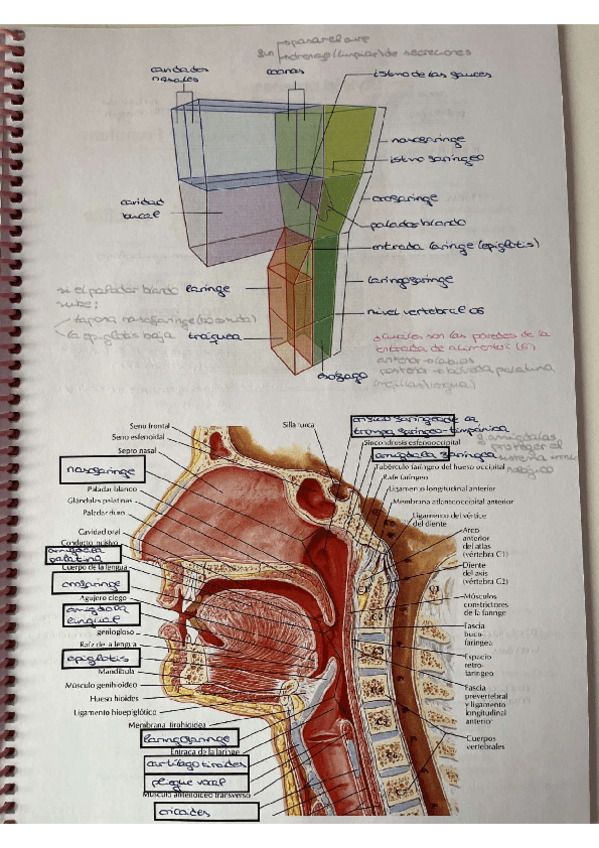 pasar el aire
drenaje (limpiar) de secreciones
cavidades nasales
coanas
istmo de las fauces
nasofaringe
istmo faríngeo
orofaringe
cavidad bucal
paladar blando
entrada laringe (epiglotis)
si el paladar blando
sube:
laringe
laringofaringe
tapona nasofaringe
la epiglotis baja
tráquea
nivel vertebral C6
esófago
cuales son las paredes de la
entrada de alimentos (6)
anterior → labios
posterior → bóveda palatina
Seno frontal
Seno esfenoidal
Septo nasal
nasofaringe
Paladar blanco
Glándulas palatinas
Paladar duro
Cavidad oral
Conducto incisivo
amigdala palatina
Cuerpo de la lengua
orofaringe
Agujero ciego
amigdala lingual
geniogloso
Raíz de la lengua
epiglotis
Mandíbula
Músculo genihioideo
Hueso hioides
Ligamento hioepiglótico
Membrana tirohioidea
laringofaringe
Entraca de la laringe
cartílago tiroides
pliegue vocal
Músculo aritenoideo transverso
cricoides
Silla turca
orificio faríngeo de la
trompa faringo-timpánica
Sincondrosis esfenooccipital
amigdala faríngea
Tubérculo faríngeo del hueso occipital
Rafe faríngeo
Ligamento longitudinal anterior
Membrana atlantooccipital anterior
Ligamento del vértice
del diente
Arco
anterior
del atlas
(vértebra C1)
Diente
del axis
(vértebra C2)
Músculos
constrictores
de la faringe
Fascia
buco-
faríngea
Espacio
retro-
faríngeo
Fascia
prevertebral
y ligamento
longitudinal
anterior
Cuerpos
vertebrales
amigdalas
proteger el
sistema inmu
nológico